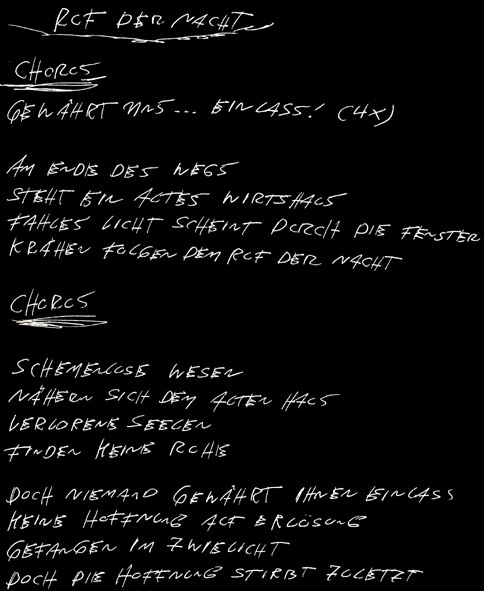 RUF DER NACHT
CHORUS
GEWÄHRT UNS... EINLASS! (4X)
AM ENDE DES WEGS
STEHT EIN ALTES WIRTSHAUS
FAHLES LICHT SCHEINT DURCH DIE FENSTER
KRÄHEN FOLGEN DEM RUF DER NACHT
CHORUS
SCHEMENLOSE WESEN
NÄHERN SICH DEM ALTEN HAUS
VERLORENE SEELEN
FINDEN KEINE RUHE
DOCH NIEMAND GEWÄHRT IHNEN EINLASS
KEINE HOFFNUNG AUF ERLÖSUNG
GEFANGEN IM ZWIELICHT
DOCH DIE HOFFNUNG STIRBT ZULETZT